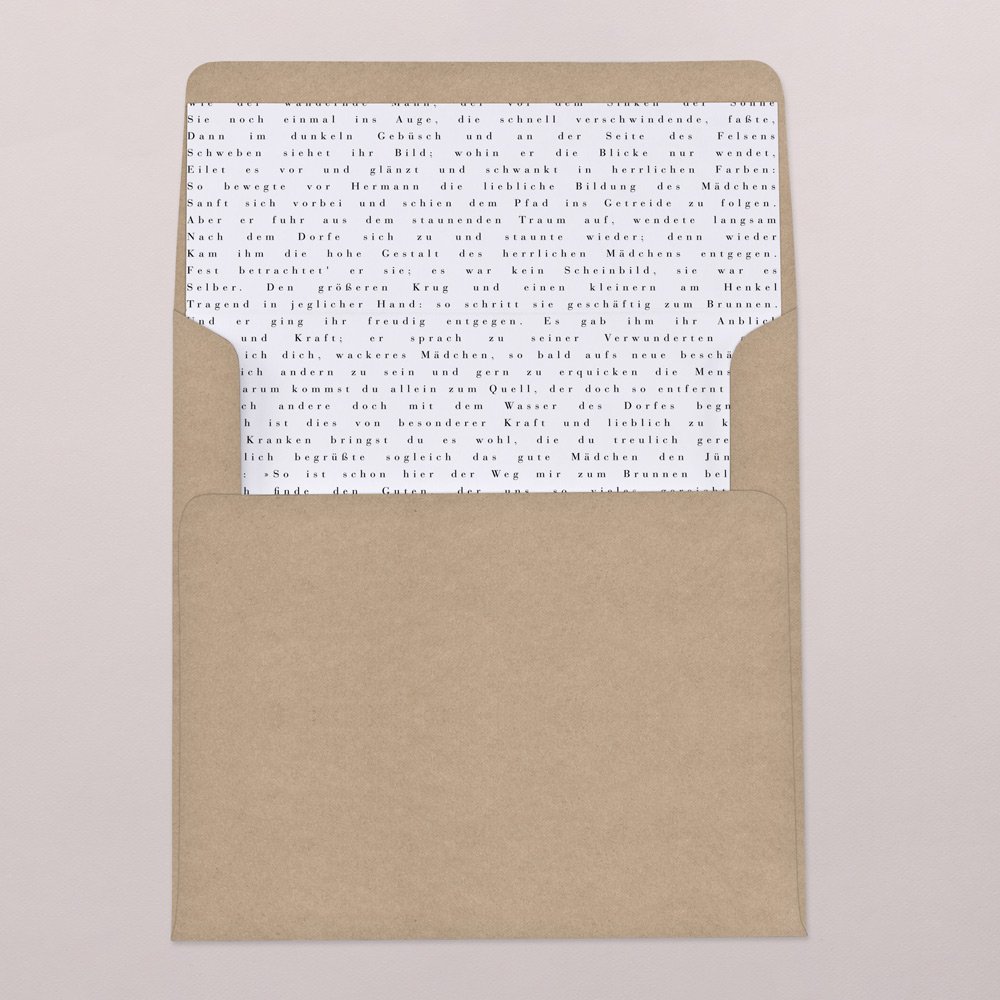 wie der wandernde Mann, der vor dem Sinken der Sonne
Sie noch einmal ins Auge, die schnell verschwindende, faßte,
Dann im dunkeln Gebüsch und an der Seite des Felsens
Schweben siehet ihr Bild; wohin er die Blicke nur wendet,
Eilet es vor und glänzt und schwankt in herrlichen Farben:
So bewegte vor Hermann die liebliche Bildung des Mädchens
Sanft sich vorbei und schien dem Pfad ins Getreide zu folgen.
Aber er fuhr aus dem staunenden Traum auf, wendete langsam
Nach dem Dorfe sich zu und staunte wieder; denn wieder
Kam ihm die hohe Gestalt des herrlichen Mädchens entgegen.
Fest betrachtet' er sie; es war kein Scheinbild, sie war es
Selber. Den größeren Krug und einen kleinern am Henkel
Tragend in jeglicher Hand: so schritt sie geschäftig zum Brunnen.
Und er ging ihr freudig entgegen. Es gab ihm ihr Anblick
und Kraft; er sprach zu seiner Verwunderten
ich dich, wackeres Mädchen, so bald aufs neue beschä
ich andern zu sein und gern zu erquicken die Mens
arum kommst du allein zum Quell, der doch so entfernt
ch andere doch mit dem Wasser des Dorfes begn
h ist dies von besonderer Kraft und lieblich zu k
Kranken bringst du es wohl, die du treulich gere
lich begrüßte sogleich das gute Mädchen den Jün
: »So ist schon hier der Weg mir zum Brunnen bel
h finde den Guten, der uns so vieles gereicht